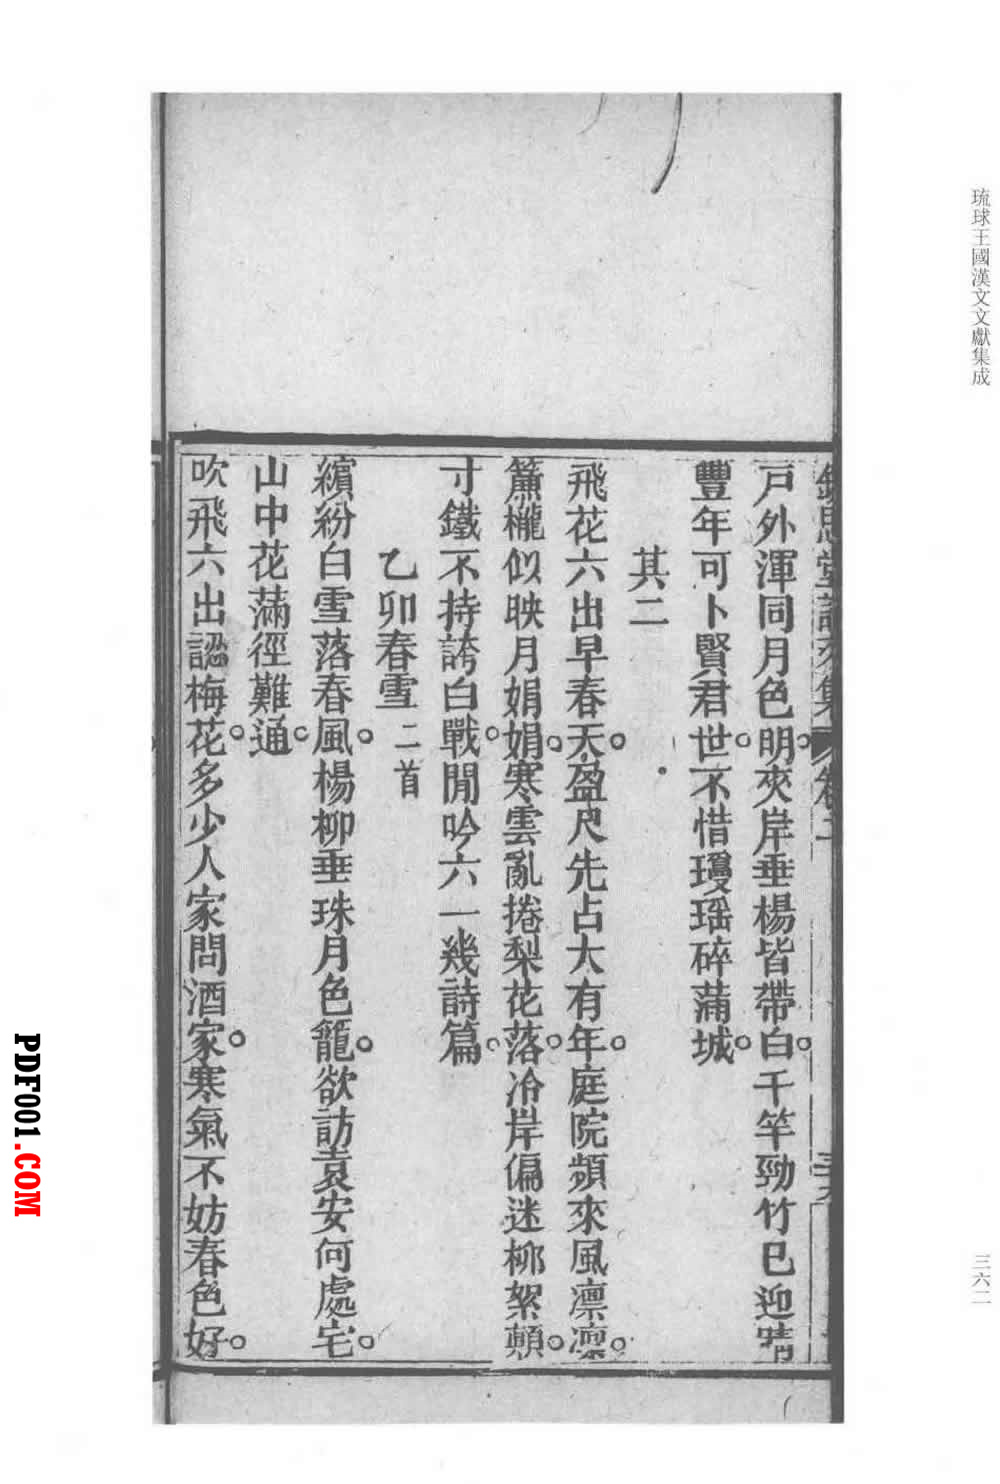 琉球王國漢文文獻集成
三六二
戸外渾同月色明。夾岸垂楊皆帶白。千竿勁竹巳迎晴
豐年可卜賢君世。不惜瓊瑶碎滿城。
其二
飛花六出早春天。盈尺先占大有年。庭院頻來風凛凛。
簾櫳似映月娟娟。寒雲亂捲梨花落。冷岸偏迷柳絮顛。
寸鐵不持誇白戰。閒吟六一幾詩篇。
乙卯春雪 二首
繽紛白雪落春風。楊柳垂珠月色籠。欲訪袁安何處宅。
山中花滿徑難通。
吹飛六出認梅花。多少人家問酒家。寒氣不妨春色好。
PDF001.COM